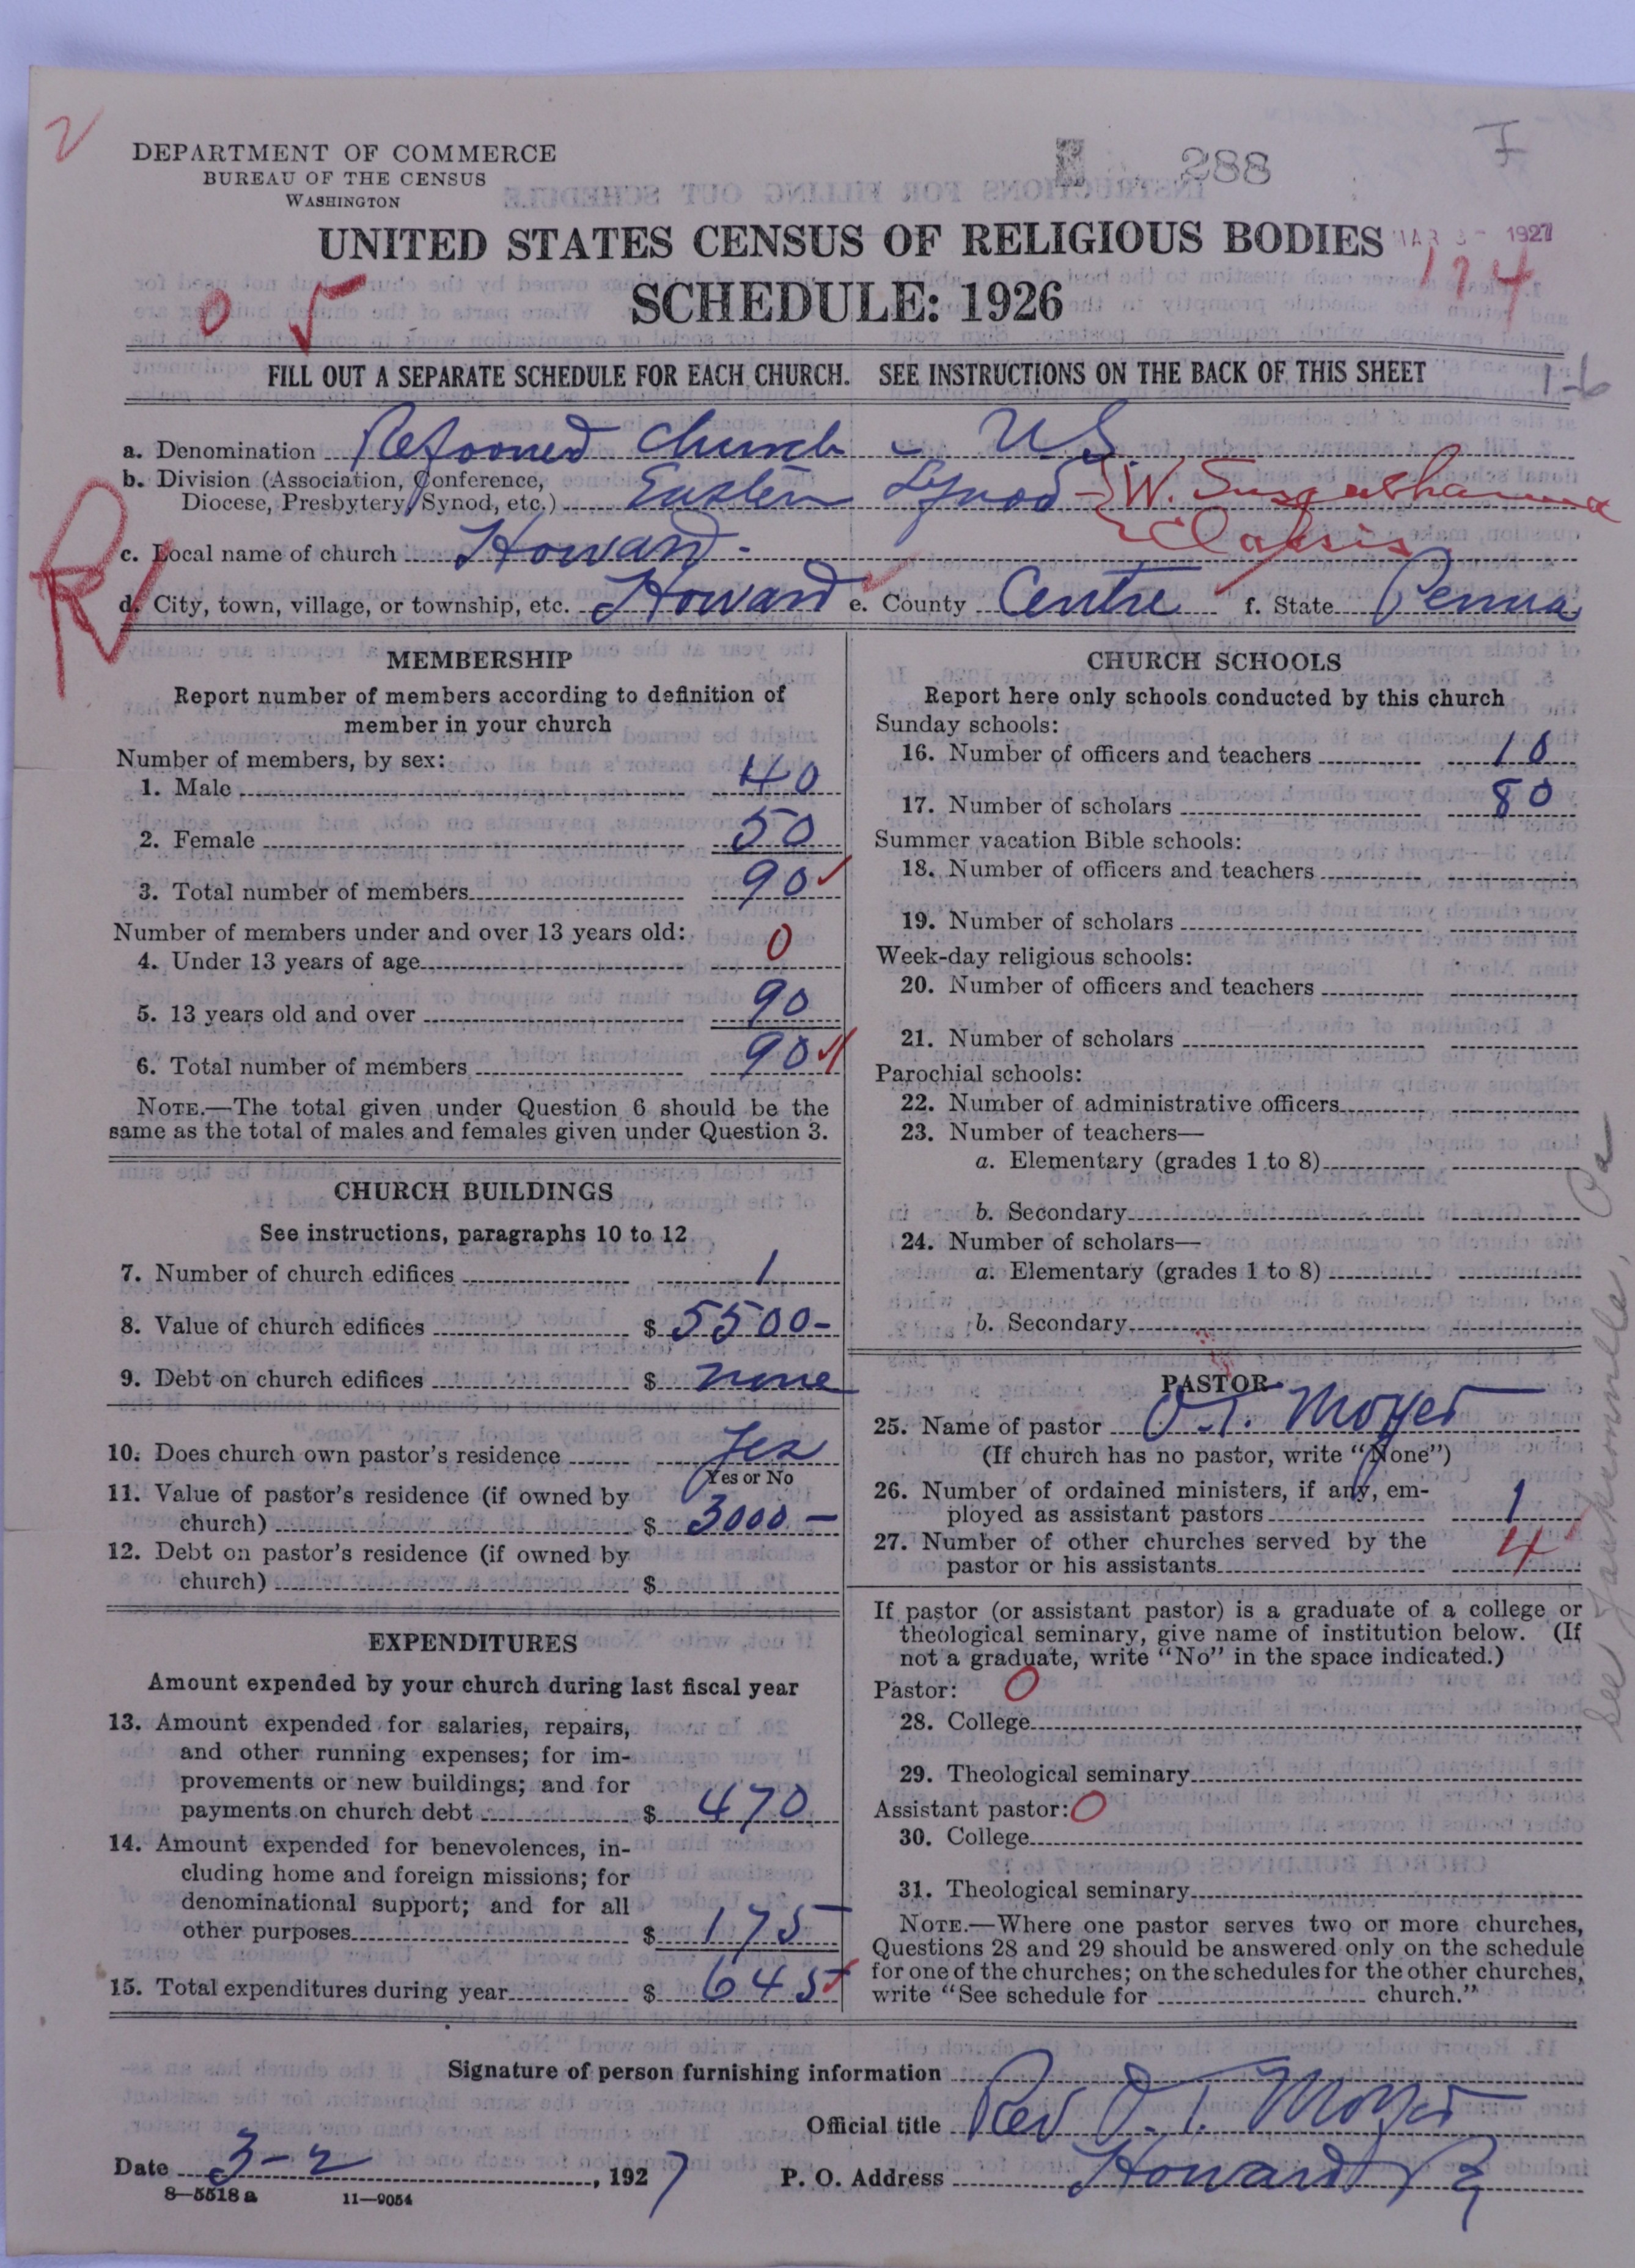 2
DEPARTMENT OF COMMERCE
BUREAU OF THE CENSUS
WASHINGTON
288
I
UNITED STATES CENSUS OF RELIGIOUS BODIES
MAR 3 - 1927
SCHEDULE: 1926
174
0 √
FILL OUT A SEPARATE SCHEDULE FOR EACH CHURCH. SEE INSTRUCTIONS ON THE BACK OF THIS SHEET
1-6
a. Denomination Reformed Church - U S.
b. Division (Association, Conference,
Diocese, Presbytery, Synod, etc.) Eastern Synod - W. Susquehanna
Classis
c. Local name of church Howard -
R
d. City, town, village, or township, etc. Howard e. County Centre f. State Penna
MEMBERSHIP
Report number of members according to definition of
member in your church
Number of members, by sex:
1. Male 40
2. Female 50
3. Total number of members 90 ✓
Number of members under and over 13 years old:
4. Under 13 years of age 0
5. 13 years old and over 90
6. Total number of members 90 ✓
NOTE.—The total given under Question 6 should be the
same as the total of males and females given under Question 3.
CHURCH BUILDINGS
See instructions, paragraphs 10 to 12
7. Number of church edifices 1
8. Value of church edifices $ 5500-
9. Debt on church edifices $ none
10. Does church own pastor's residence Yes
Yes or No
11. Value of pastor's residence (if owned by
church) $ 3000 -
12. Debt on pastor's residence (if owned by
church) $
EXPENDITURES
Amount expended by your church during last fiscal year
13. Amount expended for salaries, repairs,
and other running expenses; for im-
provements or new buildings; and for
payments on church debt $ 470
14. Amount expended for benevolences, in-
cluding home and foreign missions; for
denominational support; and for all
other purposes $ 175
15. Total expenditures during year $ 645 ✓
CHURCH SCHOOLS
Report here only schools conducted by this church
Sunday schools:
16. Number of officers and teachers 10
17. Number of scholars 80
Summer vacation Bible schools:
18. Number of officers and teachers
19. Number of scholars
Week-day religious schools:
20. Number of officers and teachers
21. Number of scholars
Parochial schools:
22. Number of administrative officers
23. Number of teachers—
a. Elementary (grades 1 to 8)
b. Secondary
24. Number of scholars—
a. Elementary (grades 1 to 8)
b. Secondary
PASTOR
25. Name of pastor O. T. Moyer
(If church has no pastor, write "None")
26. Number of ordained ministers, if any, em-
ployed as assistant pastors 1
27. Number of other churches served by the
pastor or his assistants 4
If pastor (or assistant pastor) is a graduate of a college or
theological seminary, give name of institution below. (If
not a graduate, write "No" in the space indicated.)
Pastor: 0
28. College
29. Theological seminary
Assistant pastor: 0
30. College
31. Theological seminary
NOTE.—Where one pastor serves two or more churches,
Questions 28 and 29 should be answered only on the schedule
for one of the churches; on the schedules for the other churches,
write "See schedule for church."
See Jacksonville, Pa
Signature of person furnishing information
Official title Rev O. T. Moyer
Date 3-2, 1927 P. O. Address Howard Pa
8—5518a 11—9054